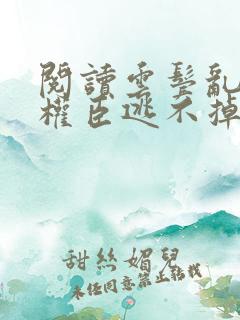 閱讀雲鬓亂
權臣逃不掉
甜絲媚兒
未經同意禁止轉載